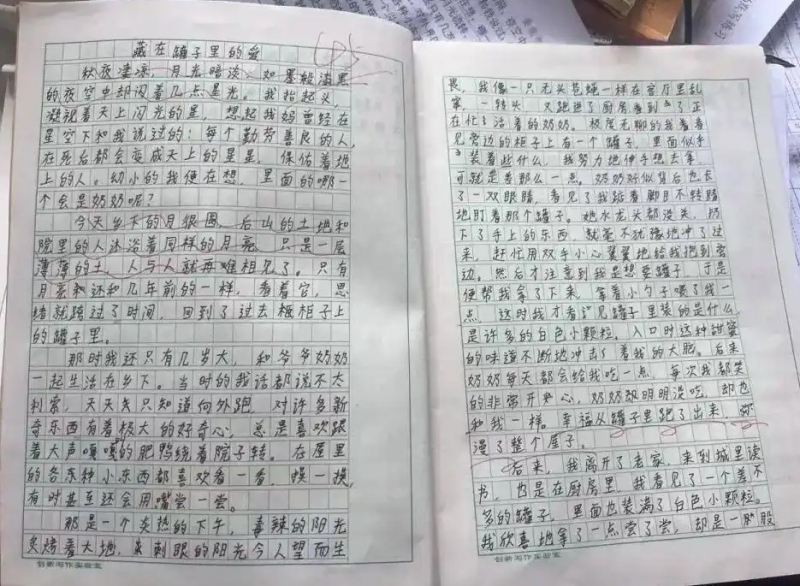 藏在罐子里的爱
秋夜凄凉,月光暗淡,如墨般漆黑
的夜空中却闪着几点星光。我抬起头,
凝视着天上闪光的星,想起我妈曾经在
星空下和我说过的:每个勤劳善良的人,
在死后都会变成天上的星星,保佑着地
上的人。幼小的我便在想,里面的哪一
个会是奶奶呢?
今天乡下的月很圆,后山的土地和
院里的人沐浴着同样的月亮,只是一层
薄薄的土,人与人就再难相见了。只有
月亮还和几年前的一样,看着它,思
绪就跨过了时间,回到了过去柜子上
的罐子里。
那时我还只有几岁大,和爷爷奶奶
一起生活在乡下。当时的我话都说不太
利索,天天只知道向外跑,对许多新
奇东西有着极大的好奇心,总是喜欢跟
着大声嘎嘎的肥鸭绕着院子转。在屋里
的各种小东西都喜欢看一看,摸一摸,
有时甚至还会用嘴尝一尝。
那是一个炎热的下午,毒辣的阳光
炙烤着大地,刺眼的阳光令人望而生
畏,我像一只无头苍蝇一样在客厅里乱
窜,一转头,又跑进了厨房看到了正
在忙活着的奶奶。极度无聊的我看着
见旁边的柜子上有一个罐子,里面似乎
装着些什么,我努力地伸手想去拿,
可就是差那么一点。奶奶好似背后也长
了一双眼睛,看见了我踮着脚目不转睛
地盯着那个罐子。她水龙头都没关,扔
下了手上的东西,就毫不犹豫地冲了过
来,赶忙用双手小心翼翼地给我抱到旁
边。然后才注意到我是想要罐子,于是
便帮我拿了下来,拿着小勺子喂了我一
点,这时我才看见罐子里装的是什么,
是许多的白色小颗粒,入口时这种甜蜜
的味道不断地冲击着我的大脑。后来
奶奶每天都会给我吃一点,每次我都笑
的非常开心,奶奶明明没吃,却也
和我一样。幸福从罐子里跑了出来,弥
漫了整个屋子。
后来,我离开了老家,来到城里读
书,也是在厨房里,我看见了一个差不
多的罐子,里面也装满了白色小颗粒。
我欣喜地拿了一点尝了尝,却是一股
创新写作实验室
创新写作实验室